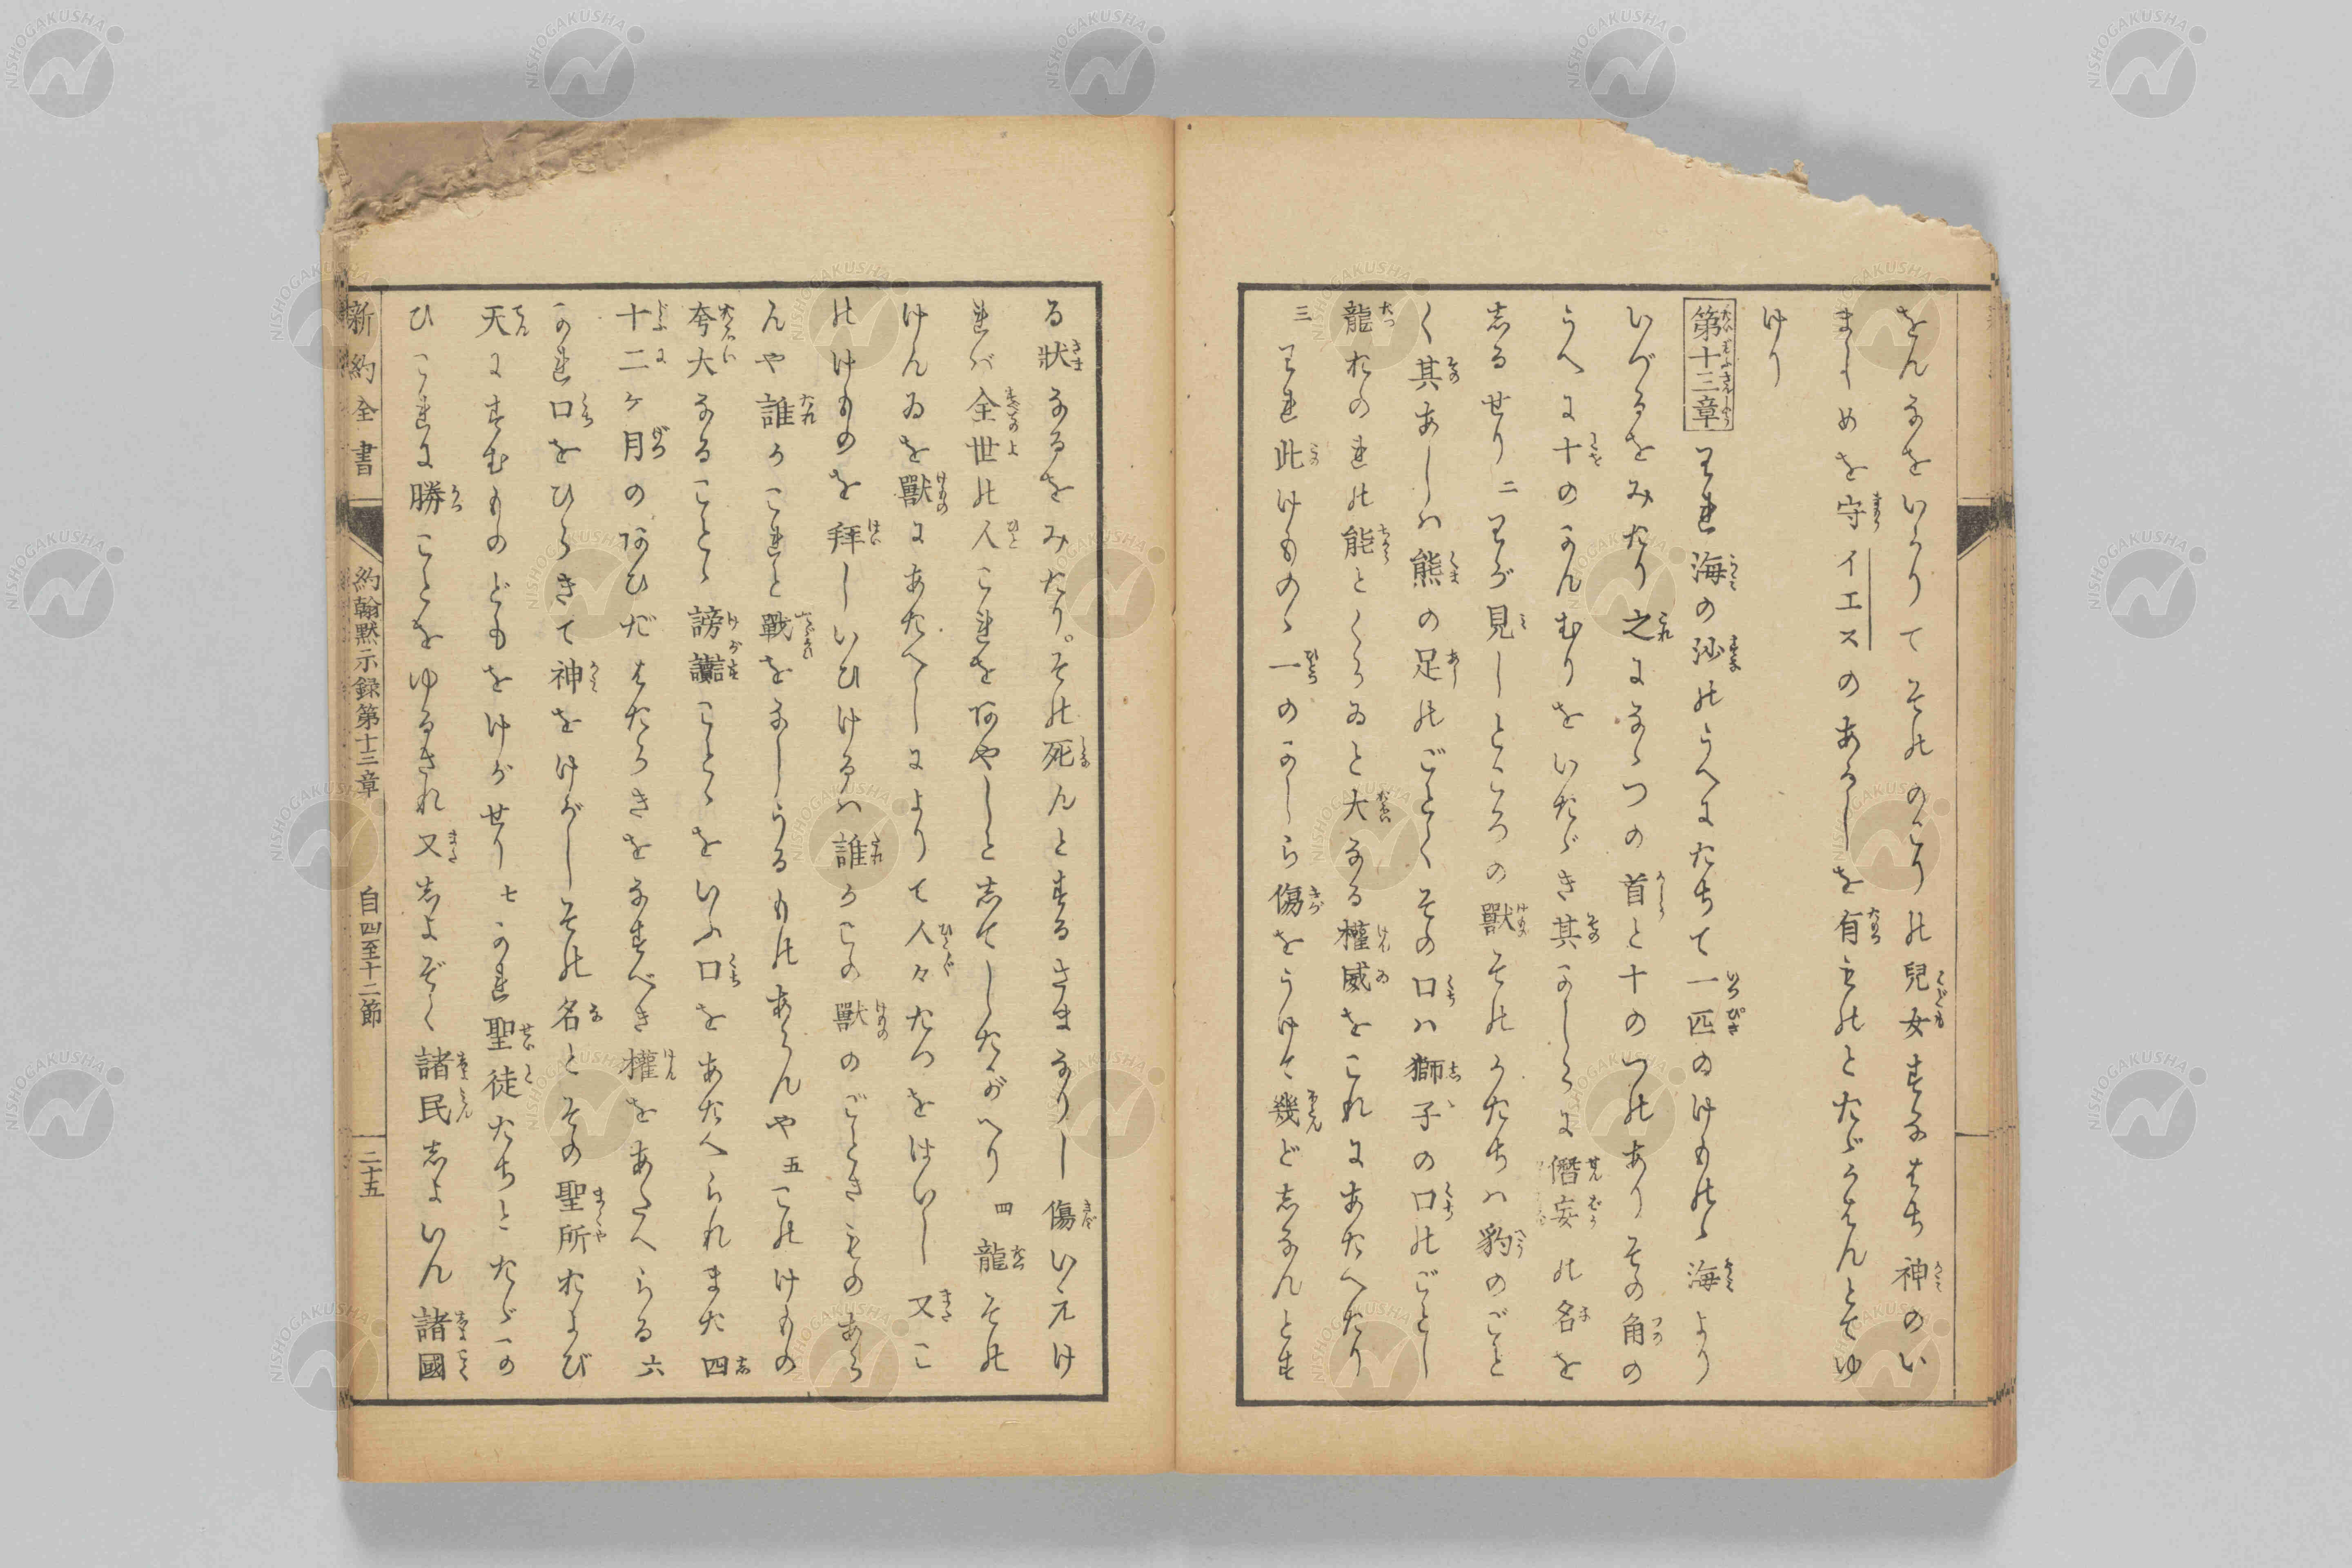 をんなをいかりてそのゝこりの兒女すなはち神のい
ましめを守イエスのあかしを有ものとたゞかはんとてゆ
けり
第十三章 われ海の沙のうへにたちて一匹のけもの海より
いづるをみたり之になゝつの首と十のつのありその角の
うへに十のかんむりをいたゞき其かしらに僭妄の名を
志るせり二わが見しところの獸そのかたちハ豹のごと
く其あしハ熊の足のごとくその口ハ獅子の口のごとし
龍おのれの能とくらゐと大なる權威をこれにあたへたり
三 われ此けものゝ一のかしら傷をうけて幾ど志なんとす
る狀なるをみたり。その死んとするさまなりし傷いえけ
れバ全世の人これをあやしと志てしたがへり四龍その
けんゐを獸にあたへしによりて人々たつをはいし又こ
のけものを拜しいひけるハ誰かこの獸のごときものあら
んや誰かこれと戰をなしうるものあらんや五このけもの
夸大なることゝ謗讟ことゝをいふ口をあたへられまた四
十二ケ月のあひだはたらきをなすべき權をあたへらる六
かれ口をひらきて神をけがしその名とその聖所および
天にすむものどもをけがせり七かれ聖徒たちとたゞか
ひこれに勝ことをゆるされ又志よぞく諸民志よいん諸國
新約全書 約翰默示録第十三章 自四至十二節 二十五